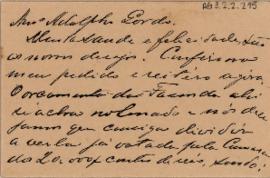 AG 3.2.2.295
Am.º Adolpho Gordo.
Muita saude e felicidade, são
os nossos desejos. Confirmo o
meu pedido e reitero agora.
O orçamento da Fazenda ahi
se acha no Senado e nós dese
jamos que consiga dividir
a verba já votada pela Camara
dos 20.000$ contos de reis, sendo: